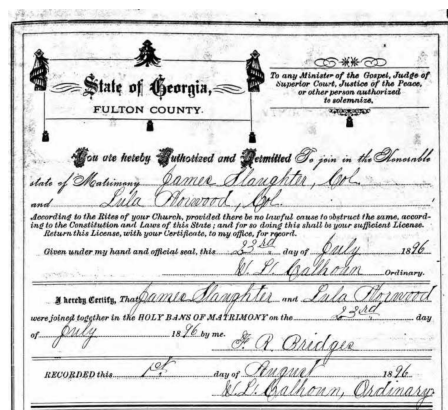 State of Georgia,
FULTON COUNTY.
To any Minister of the Gospel, Judge of
Superior Court, Justice of the Peace,
or other person authorized
to solemnize.
You are hereby Authorized and Permitted To join in the Honorable
state of Matrimony James Slaughter, Col.
and Lula Norwood, Col.
According to the Rites of your Church, provided there be no lawful cause to obstruct the same, accord-
ing to the Constitution and Laws of this State; and for so doing this shall be your sufficient License.
Return this License, with your Certificate, to my office, for record.
Given under my hand and official seal, this 23rd day of July 1896
W. L. Calhoun Ordinary.
I hereby Certify, That James Slaughter and Lula Norwood
were joined together in the HOLY BANS OF MATRIMONY on the 23rd day
of July 1896 by me. F. R. Bridges
RECORDED this 1st day of August 1896.
W. L. Calhoun, Ordinary